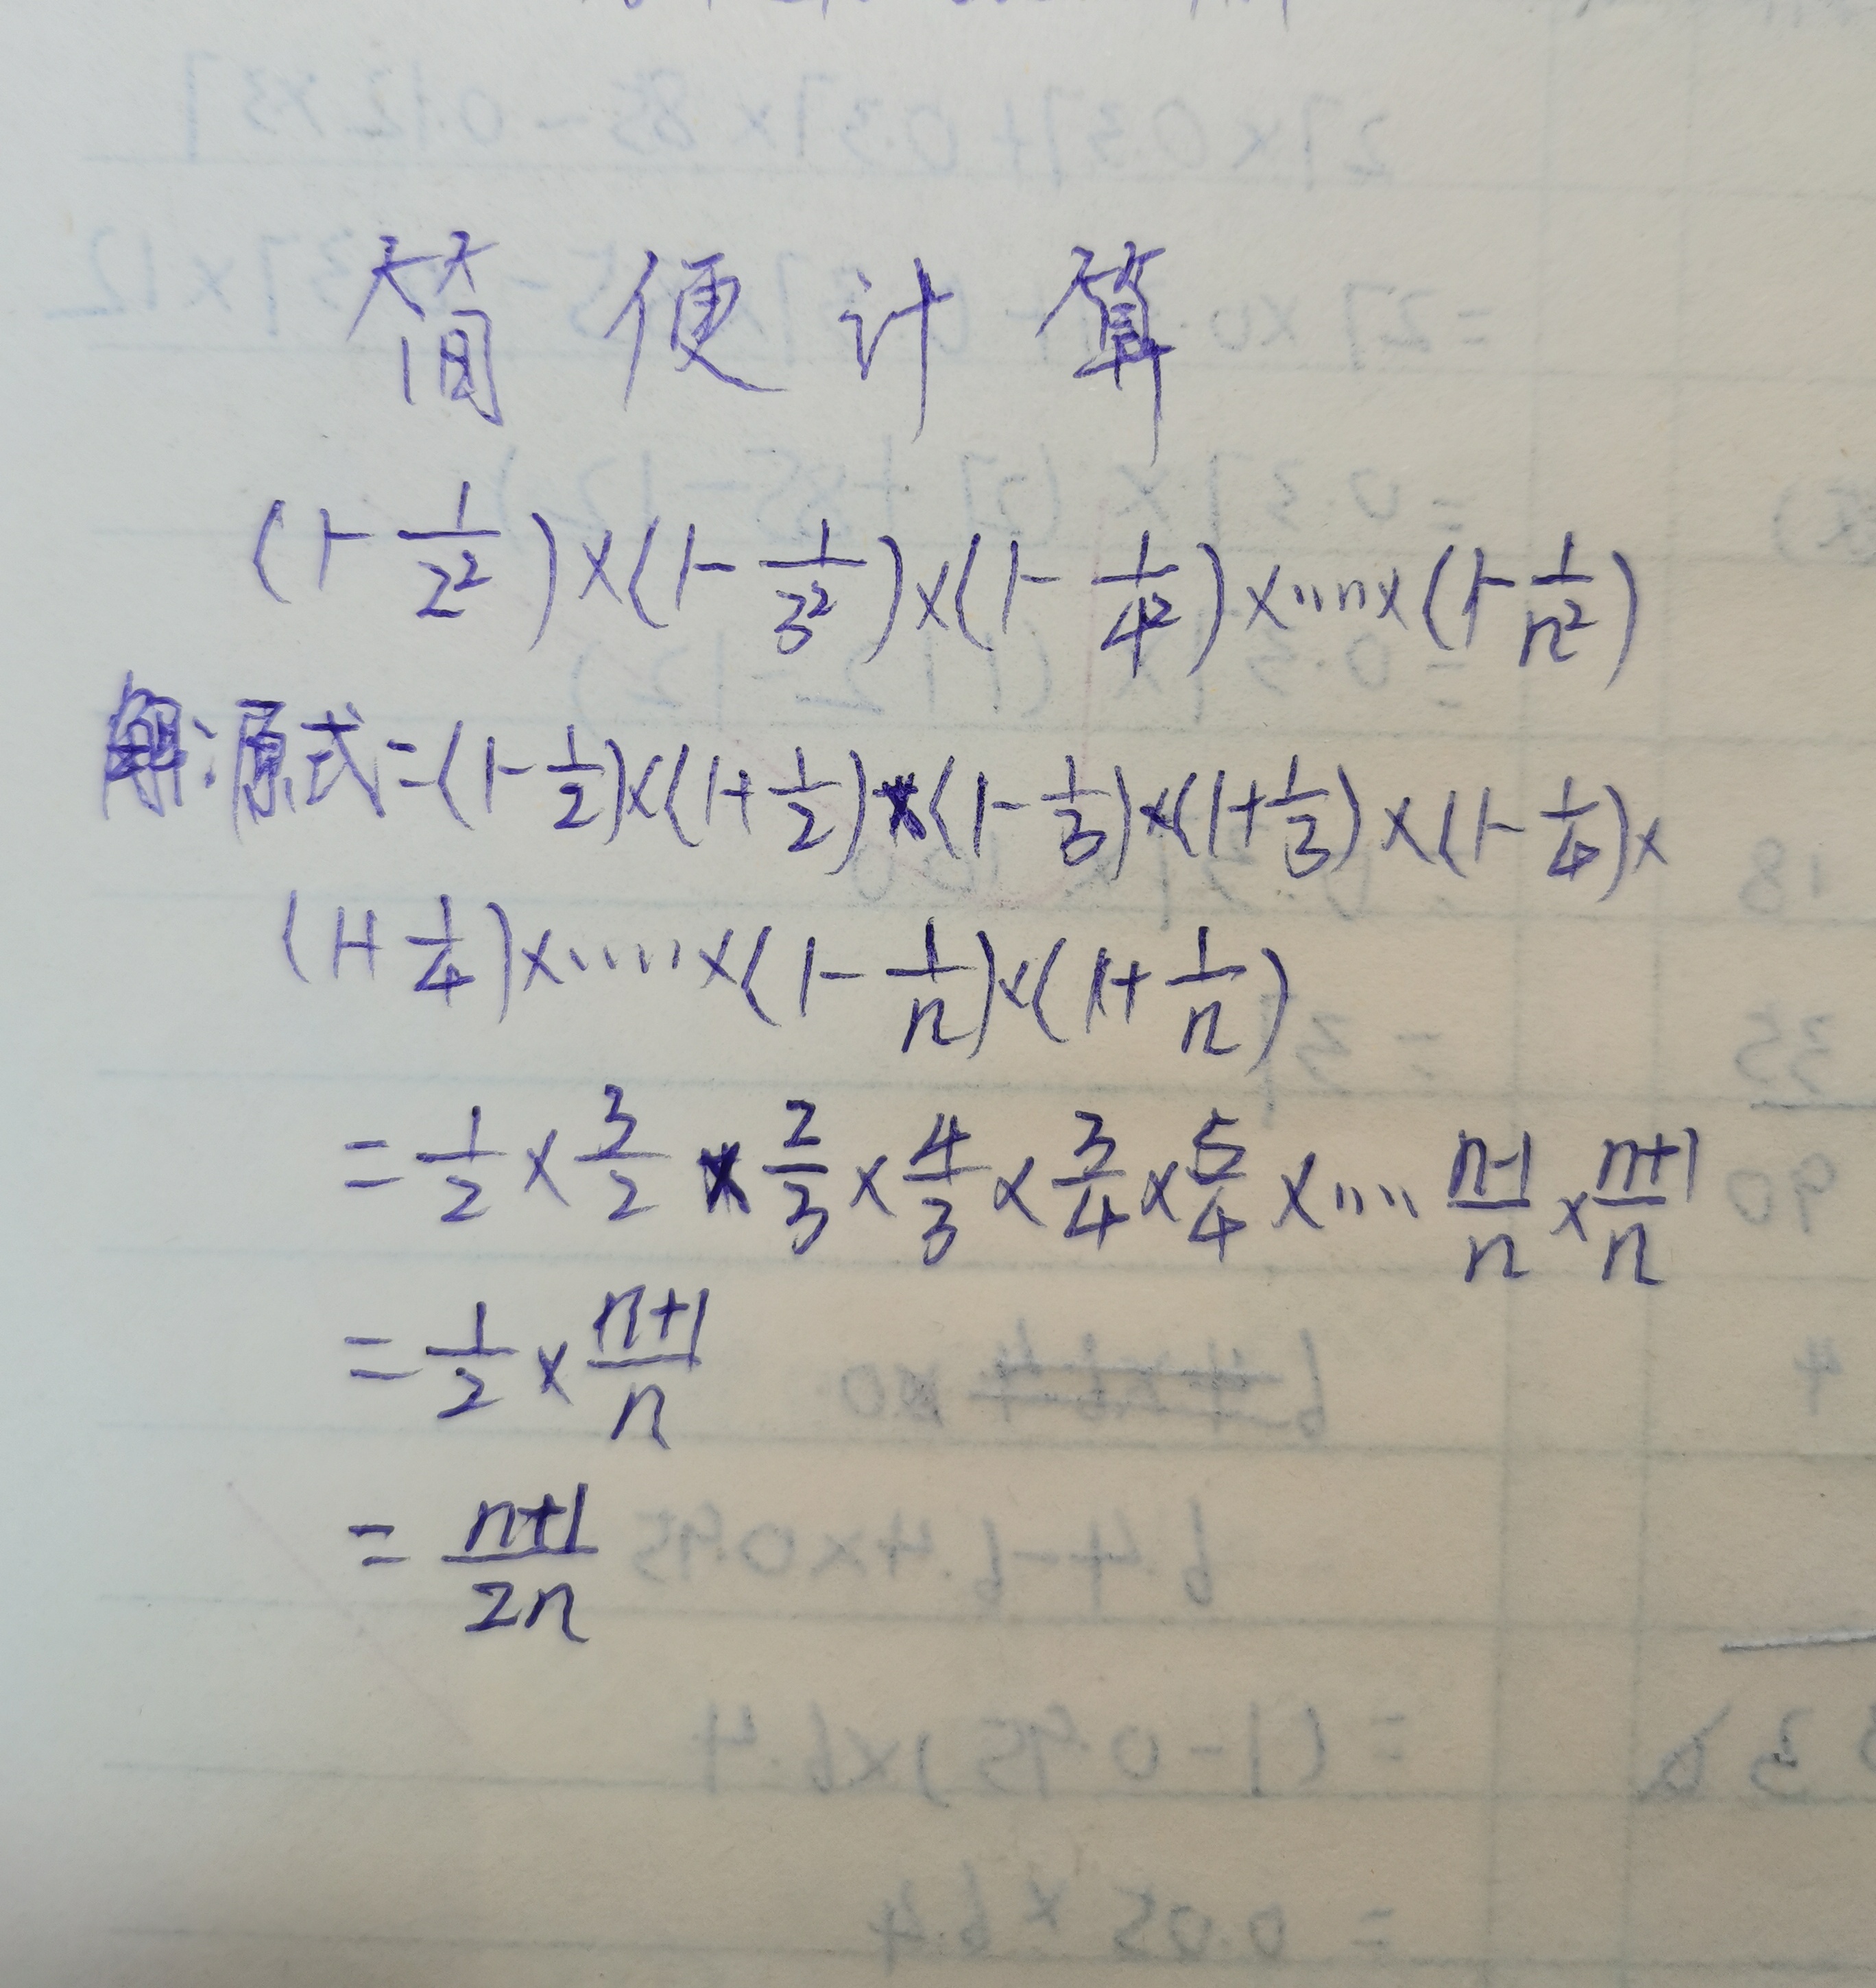 简便计算
(1-1/2²)×(1-1/3²)×(1-1/4²)×……×(1-1/n²)
解:源式=(1-1/2)×(1+1/2)×(1-1/3)×(1+1/3)×(1-1/4)×
(1+1/4)×……×(1-1/n)×(1+1/n)
=1/2×3/2×2/3×4/3×3/4×5/4×……(n-1)/n×(n+1)/n
=1/2×(n+1)/n
=(n+1)/2n